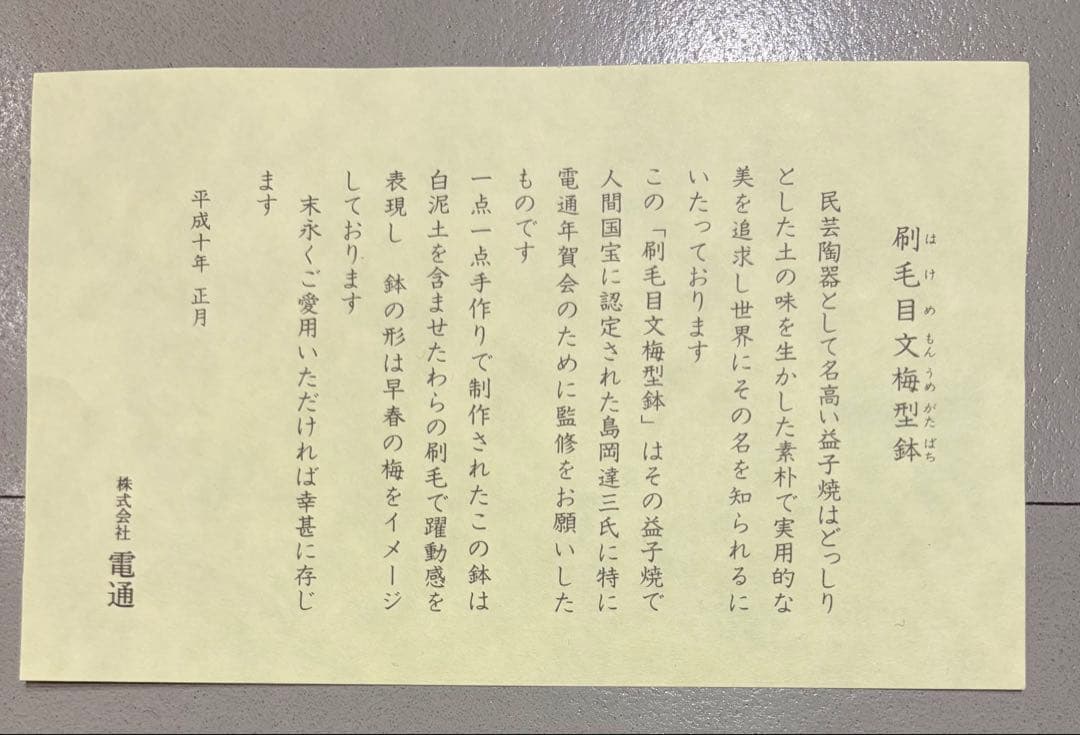 刷毛目文梅型鉢
はけめもんうめがたばち
民芸陶器として名高い益子焼はどっしり
とした土の味を生かした素朴で実用的な
美を追求し世界にその名を知られるに
いたっております
この「刷毛目文梅型鉢」はその益子焼で
人間国宝に認定された島岡達三氏に特に
電通年賀会のために監修をお願いした
ものです
一点一点手作りで制作されたこの鉢は
白泥土を含ませたわらの刷毛で躍動感を
表現し 鉢の形は早春の梅をイメージ
しております
末永くご愛用いただければ幸甚に存じ
ます
平成十年 正月
株式会社 電通